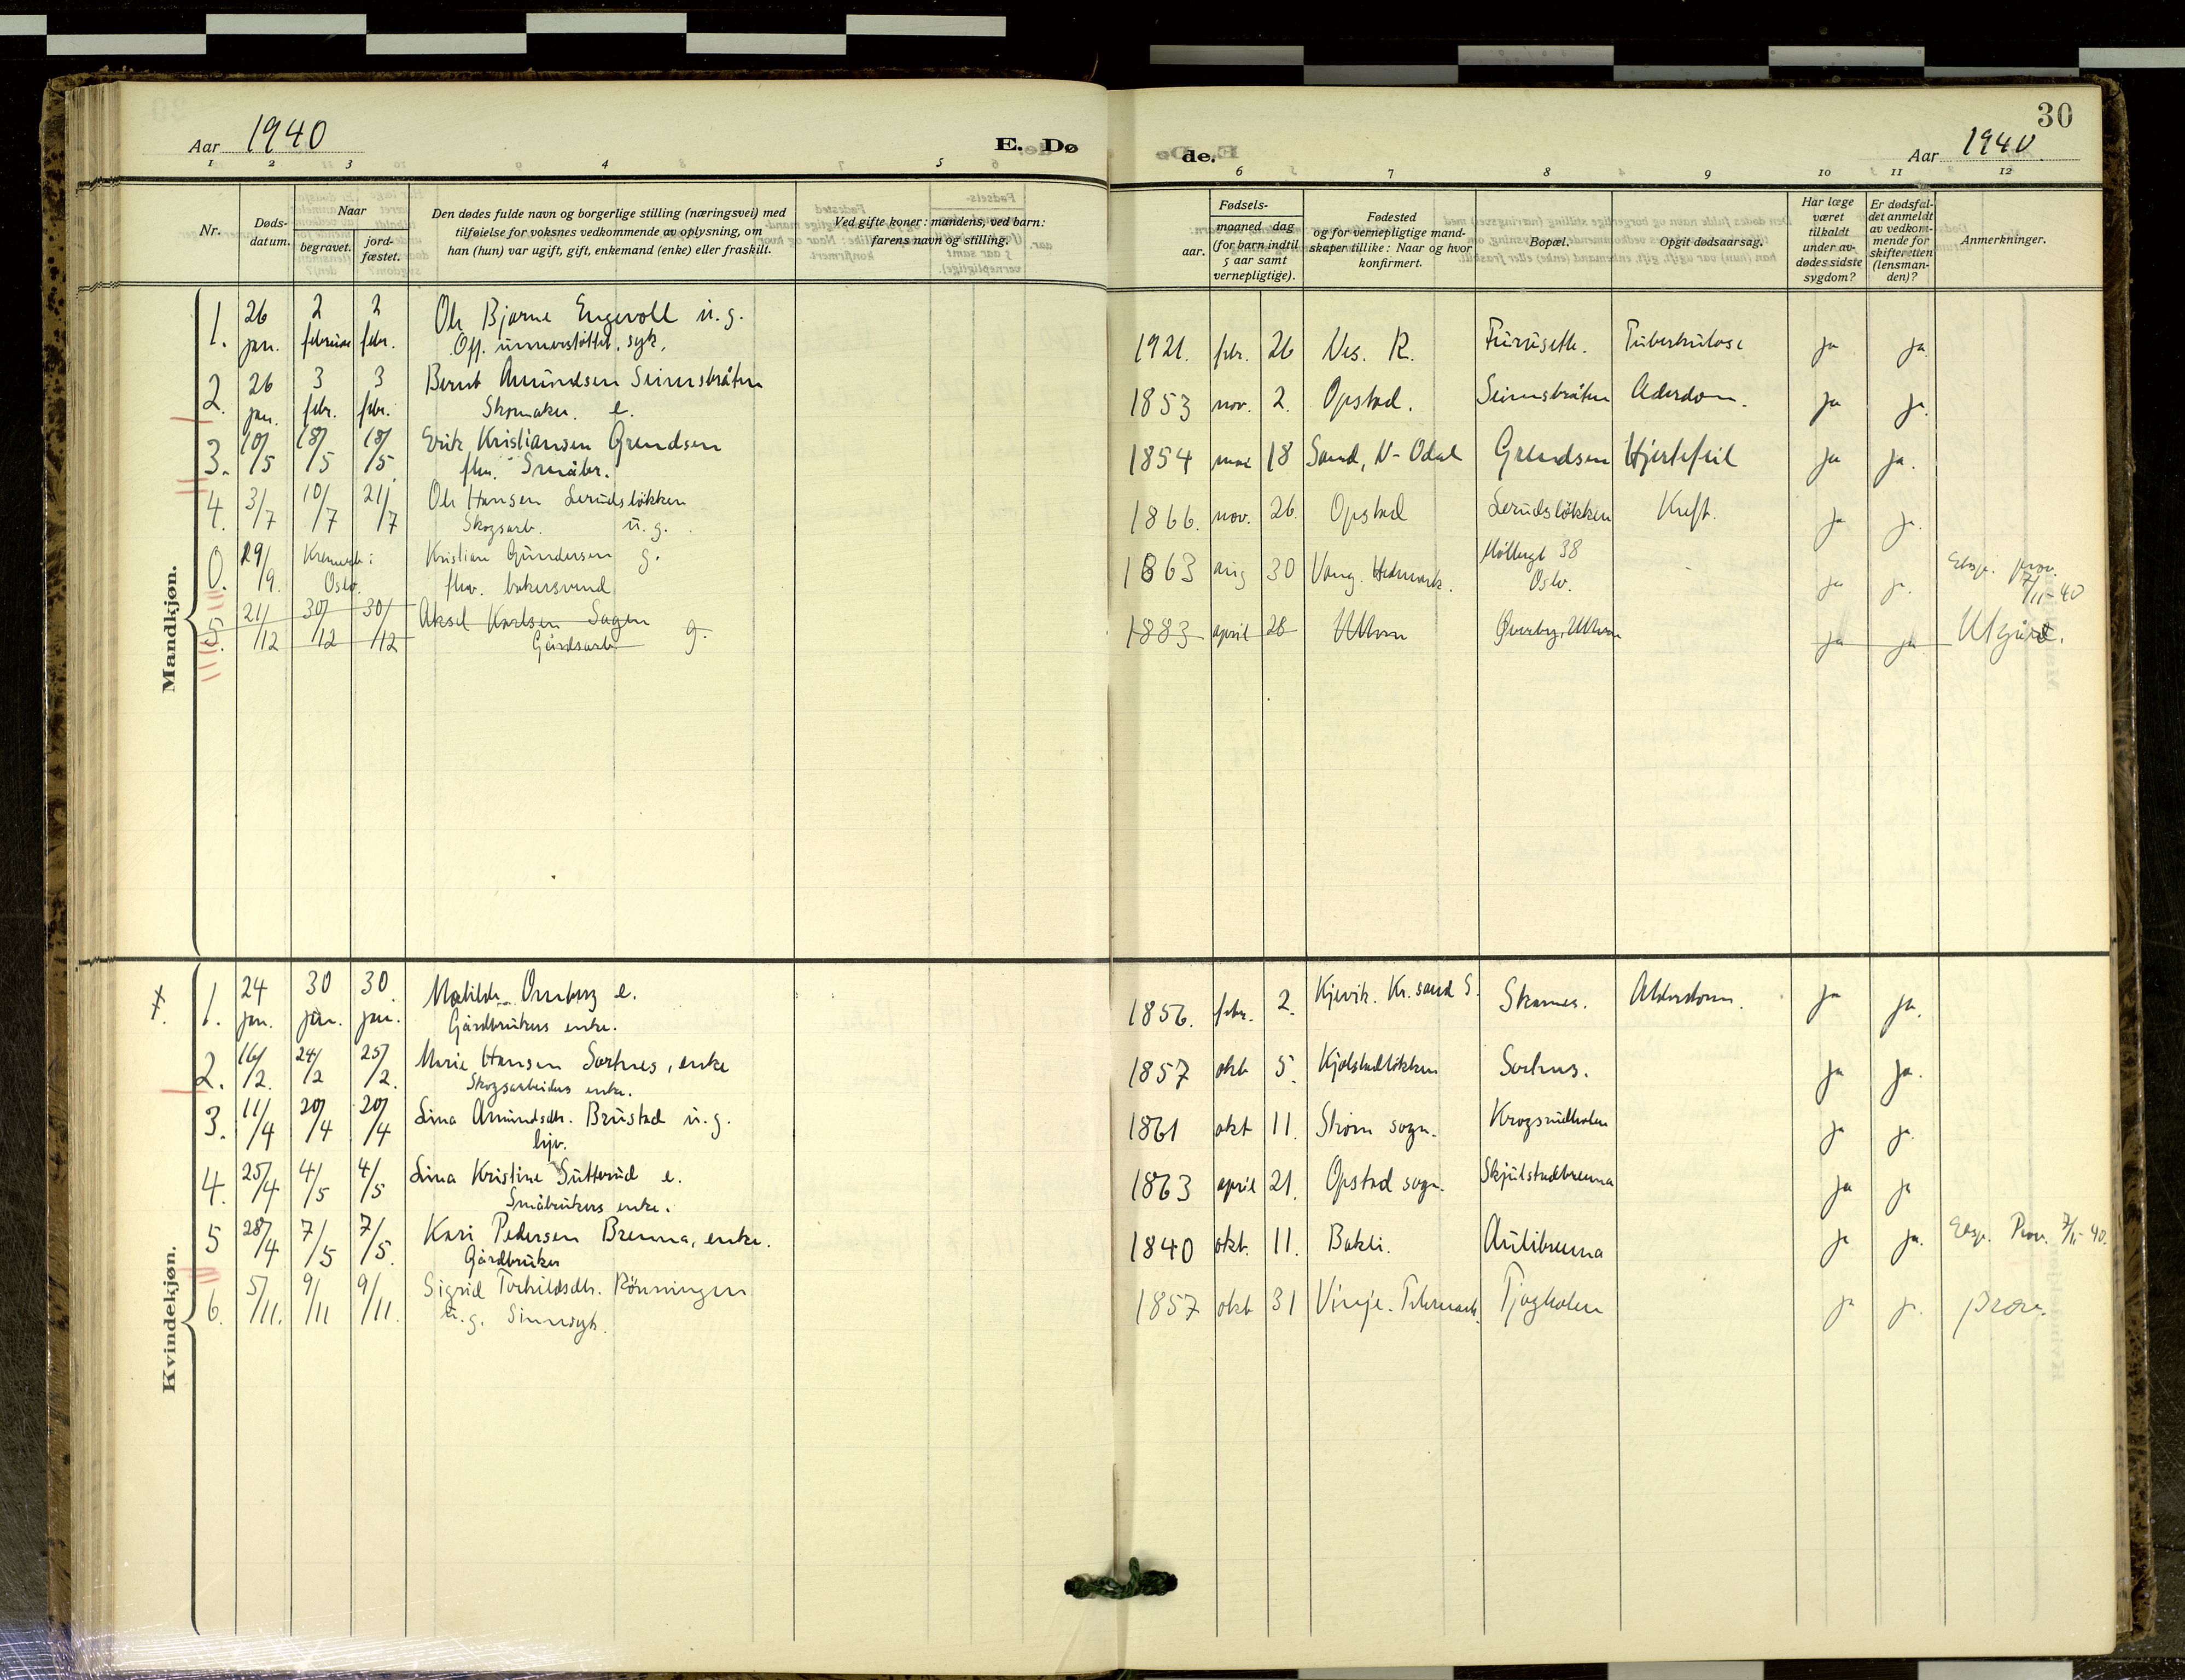 30
Aar 1940
E. Dø
de.
Aar 1940
1 2 3 4 5 6 7 8 9 10 11 12
Nr.
Døds-
datum.
Naar
begravet.
jord-
fæstet.
Den dødes fulde navn og borgerlige stilling (næringsvei) med
tilføielse for voksnes vedkommende av oplysning, om
han (hun) var ugift, gift, enkemand (enke) eller fraskilt.
Ved gifte koner: mandens, ved barn:
farens navn og stilling.
Fødsels-
aar.
maaned dag
(for barn indtil
5 aar samt
vernepligtige).
Fødested
og for vernepligtige mand-
skaper tillike: Naar og hvor
konfirmert.
Bopæl.
Opgit dødsaarsag.
Har læge
været
tilkaldt
under av-
dødes sidste
sygdom?
Er dødsfal-
det anmeldt
av vedkom-
mende for
skifteretten
(lensman-
den)?
Anmerkninger.
Mandkjøn.
1. 26 jan. 2 februar 2 febr. Ole Bjarne Engevoll u.g.
Off. understöttet, syk.
1921. febr. 26 Nes. R. Furuseth. Tuberkulose ja ja
2. 26 jan. 3 febr. 3 febr. Bernt Amundsen Seimsbråten
Skomaker. e.
1853 nov. 2. Opstad. Seimsbråten Alderdom. ja ja.
3. 10/5 18/5 18/5 Erik Kristiansen Grendsen
fhv. Småbr.
1854 mai 18 Sand, N-Odal Grendsen Hjertefeil ja ja.
4. 3/7 10/7 21/7 Ole Hansen Lerudslökken
Skogsarb. u.g.
1866. nov. 26. Opstad Lerudslökken Kreft. ja ja.
0. 29/9. Kremert i
Oslo. Kristian Gundersen g.
fhv. bakersvend
1863 aug 30 Vang. Hedmark. Möllergt 38
Oslo. ja ja. prov.
7/11-40
5. 21/12 30/12 30/12 Aksel Karlsen Sagen
Gårdsarb g.
1883 april 28 Ullern Överby, Ullern ja ja Utgård.
Kvindekjøn.
1. 24 jan. 30 jan. 30 jan. Matilde Ornberg e.
Gårdbrukers enke.
1856. febr. 2. Kjevik. Kr.sand S. Skarnes. Alderdom. ja ja.
2. 16/2. 24/2 25/2. Marie Hansen Sortnes, enke
Skogsarbeiders enke.
1857 okt 5. Kjölstadlökken Sortnes. ja ja.
3. 11/4 20/4 20/4 Lina Amundsdtr. Brustad u.g.
hjv.
1861 okt 11. Ström sogn. Krogsrudholen ja ja.
4. 25/4 4/5 4/5 Lina Kristine Sutterud e.
Småbrukers enke.
1863 april 21. Opstad sogn. Skjulstadbrenna ja ja
5 28/4 7/5 7/5. Kari Pedersen Brenna, enke.
Gårdbruker
1840 okt. 11. Bakli. Aulibrenna ja ja. Prov. 7/11-40.
6. 5/11. 9/11 9/11. Sigrid Torkildsdtr. Rönningen
u.g. Sinnsyk.
1857 okt 31 Vinje. Telemark. Tjogholen ja ja. prov.